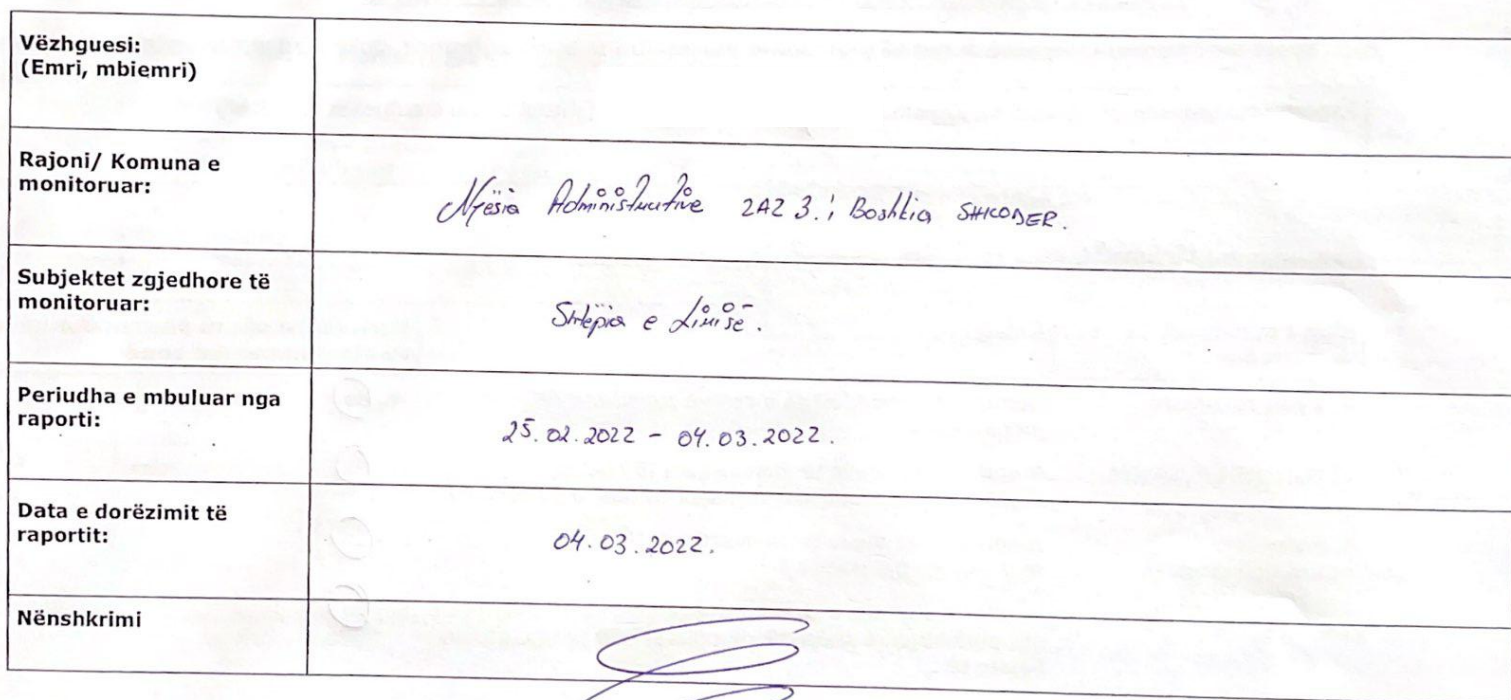 Vëzhguesi:
(Emri, mbiemri)
Rajoni/ Komuna e
monitoruar:
Njësia Administrative ZAZ 3.; Bashkia SHKODER.
Subjektet zgjedhore të
monitoruar:
Shtëpia e Lirisë.
Periudha e mbuluar nga
raporti:
25.02.2022 - 04.03.2022.
Data e dorëzimit të
raportit:
04.03.2022.
Nënshkrimi